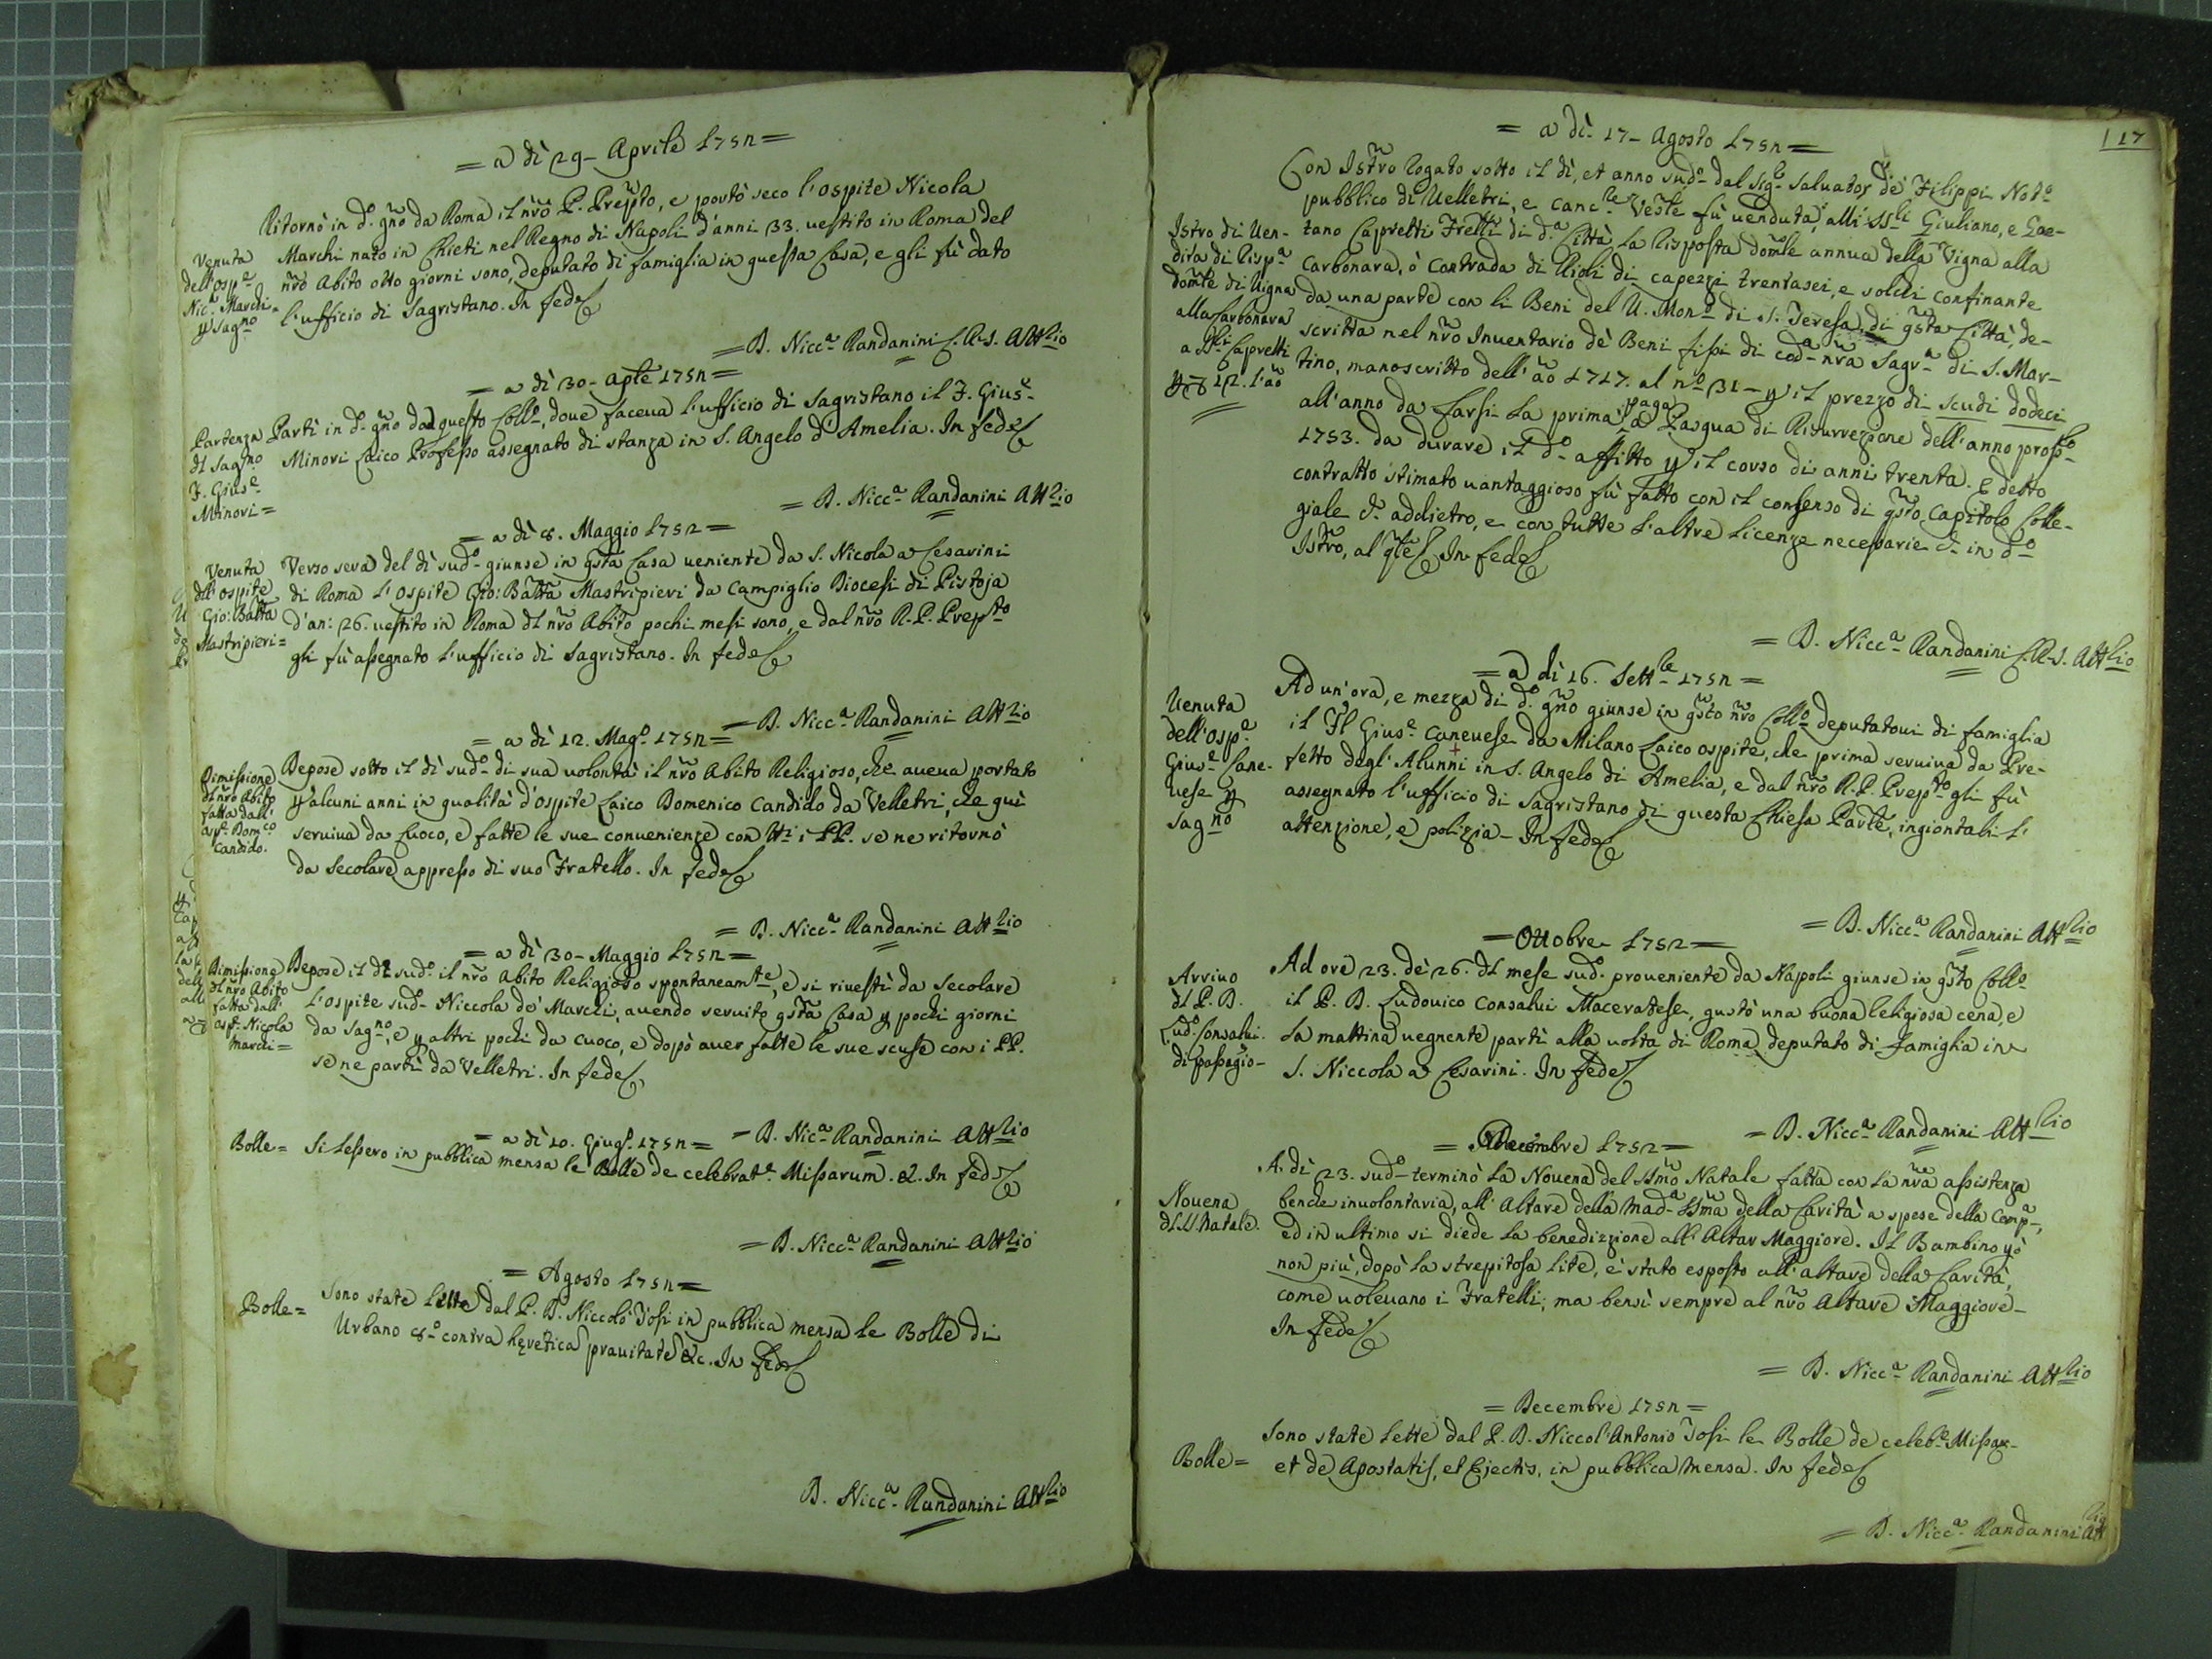 = a dì 29 - Aprile 1752 =
Ritornò in d.º gño da Roma il nr̃o P. Prep̃to, e portò seco l'ospite Nicola
Venuta
dell'osp.e
Nic.ª Marchi =
p Sag.no
Marchi nato in Chieti nel Regno di Napoli d'anni 33. uestito in Roma del
nr̃o Abito otto giorni sono, deputato di famiglia in questa Casa, e gli fù dato
l'ufficio di Sagristano. In fede
= D. Nicc.ª Randanini C.R.S. Att.rio
= a dì 30 - Ap̃le 1752 =
Partenza
dl Sag.no
F. Gius.e
Minori =
Partì in d.º gño da questo Coll.º, doue faceua l'ufficio di Sagristano il F. Gius.e
Minori Laico Professo assegnato di stanza in S. Angelo d'Amelia. In fede
= D. Nicc.ª Randanini Att.rio
= a dì 8. Maggio 1752 =
Venuta
dll'ospite
Gio: Batt̃a
Mastripieri =
Verso sera del dì sud.º giunse in q̃sta Casa ueniente da S. Nicola a Cesarini
di Roma l'ospite Gio: Batt̃a Mastripieri da Campiglio Diocesi di Pistoja
d'an: 26. uestito in Roma dl nr̃o Abito pochi mesi sono, e dal nr̃o R. P. Prep.to
gli fù assegnato l'ufficio di Sagristano. In fede
= D. Nicc.ª Randanini Att.rio
= a dì 12. Mag.º 1752 =
Dimissione
dl nr̃o Abito
fatta dall'
osp.e Dom.co
Candido.
Depose sotto il dì sud.º di sua uolontà il nr̃o Abito Religioso, che aueua portato
p alcuni anni in qualità d'ospite Laico Domenico Candido da Velletri, che quì
seruiua da Cuoco, e fatte le sue conuenienze con tt.i i PP. se ne ritornò
da Secolare appresso di suo Fratello. In fede
= D. Nicc.ª Randanini Att.rio
= a dì 30 - Maggio 1752 =
Dimissione
dl nr̃o Abito
fatta dall'
osp.e Nicola
Marchi =
Depose il dì sud.º il nr̃o Abito Religioso spontaneam.te, e si riuestì da Secolare
l'ospite sud.º Niccola de' Marchi, auendo seruito q̃sta Casa p pochi giorni
da Sag.no, e p altri pochi da cuoco, e dopò auer fatte le sue scuse con i PP.
se ne partì da Velletri. In fede
= D. Nic.ª Randanini Att.rio
= a dì 10. Giug.º 1752 =
Bolle = Si lessero in pubblica mensa le Bolle de celebrat.e Missarum. &. In fede
= D. Nicc.ª Randanini Att.rio
= Agosto 1752 =
Bolle = Sono state lette dal P. D. Niccolò Tosi in pubblica mensa le Bolle di
Urbano 8.º contra hęretica prauitate &c. In fede
D. Nicc.ª Randanini Att.rio
117
= a dì 17 - Agosto 1752 =
Con Istr̃o rogato sotto il dì, et anno sud.º dal Sig.e Saluator de' Filippi Not.º
pubblico di Uelletri, e Canc.le Vesc̃le fù uenduta, alli SS.ri Giuliano, e Gae-
Istro di Uen-
dita di risp.ª
dom̃le di Uigna
alla Carbonara
a SS.ri Capretti
12. l'ão
tano Capretti Fr̃elli di d.ª Città, la risposta dom̃le annua della Vigna alla
Carbonara, ò Contrada di Rioli di capezzi trentasei, e soldi confinante
da una parte con li Beni del V. Mon.º di S. Teresa di q̃sta Città, de-
scritta nel nr̃o Inuentario de' Beni fissi di cod.ª nr̃a Sagr.ª di S. Mar-
tino, manoscritto dell'ão 1717. al n.º 31 - p il prezzo di scudi dodeci
all'anno da farsi la prima paga a Pasqua di Risurrezione dell'anno pross.º
1753. da durare il d.º affitto p il corso di anni trenta. E detto
contratto stimato uantaggioso fù fatto con il consenso di q̃sto Capitolo Colle-
giale d.º addietro, e con tutte l'altre licenze necessarie d.e in d.º
Istr̃o, al q̃le. In fede
= D. Nicc.ª Randanini C.R.S. Att.rio
= a dì 16. Sett.be 1752 =
Uenuta
dell'osp.e
Gius.e Cane-
uese p
Sag.no
Ad un'ora, e mezza di d.º gño giunse in q̃sto nr̃o Coll.º deputatoui di famiglia
il Fr̃l Gius.e Caneuese da Milano Laico ospite, che prima seruiua da Pre-
fetto degl'Alunni in S. Angelo di Amelia, e dal nr̃o R. P. Prep.to gli fù
assegnato l'ufficio di Sagristano di questa Chiesa Parr̃le, ingiontali l'
attenzione, e polizia - In fede
= D. Nicc.ª Randanini Att.rio
= Ottobre 1752 =
Arriuo
dl P. D.
Lud.º Consalui
di passagio -
Ad ore 23. de' 26. dl mese sud.º proueniente da Napoli giunse in q̃sto Coll.º
il P. D. Ludouico Consalui Maceratese, gustò una buona religiosa cena, e
la mattina uegnente partì alla uolta di Roma deputato di famiglia in
S. Niccola a Cesarini. In fede
= D. Nicc.ª Randanini Att.rio
= Decembre 1752 =
Nouena
dl SS. Natale.
A dì 23. sud.º terminò la Nouena del SSm̃o Natale fatta con la nr̃a assistenza
benche inuolontaria, all'Altare della Mad.ª SSm̃a della Carità a spese della Comp.ª,
ed in ultimo si diede la benedizzione all'Altar Maggiore. Il Bambino pò
non più, dopò la strepitosa lite, è stato esposto all'altare della Carità,
come uoleuano i Fratelli, ma bensì sempre al nr̃o Altare Maggiore -
In fede
= D. Nicc.ª Randanini Att.rio
= Decembre 1752 =
Bolle =
Sono state lette dal P. D. Niccol'Antonio Tosi le Bolle de celeb.e Missar-
et de Apostatis, et Ejectis, in pubblica mensa. In fede
= D. Nicc.ª Randanini Att.rio